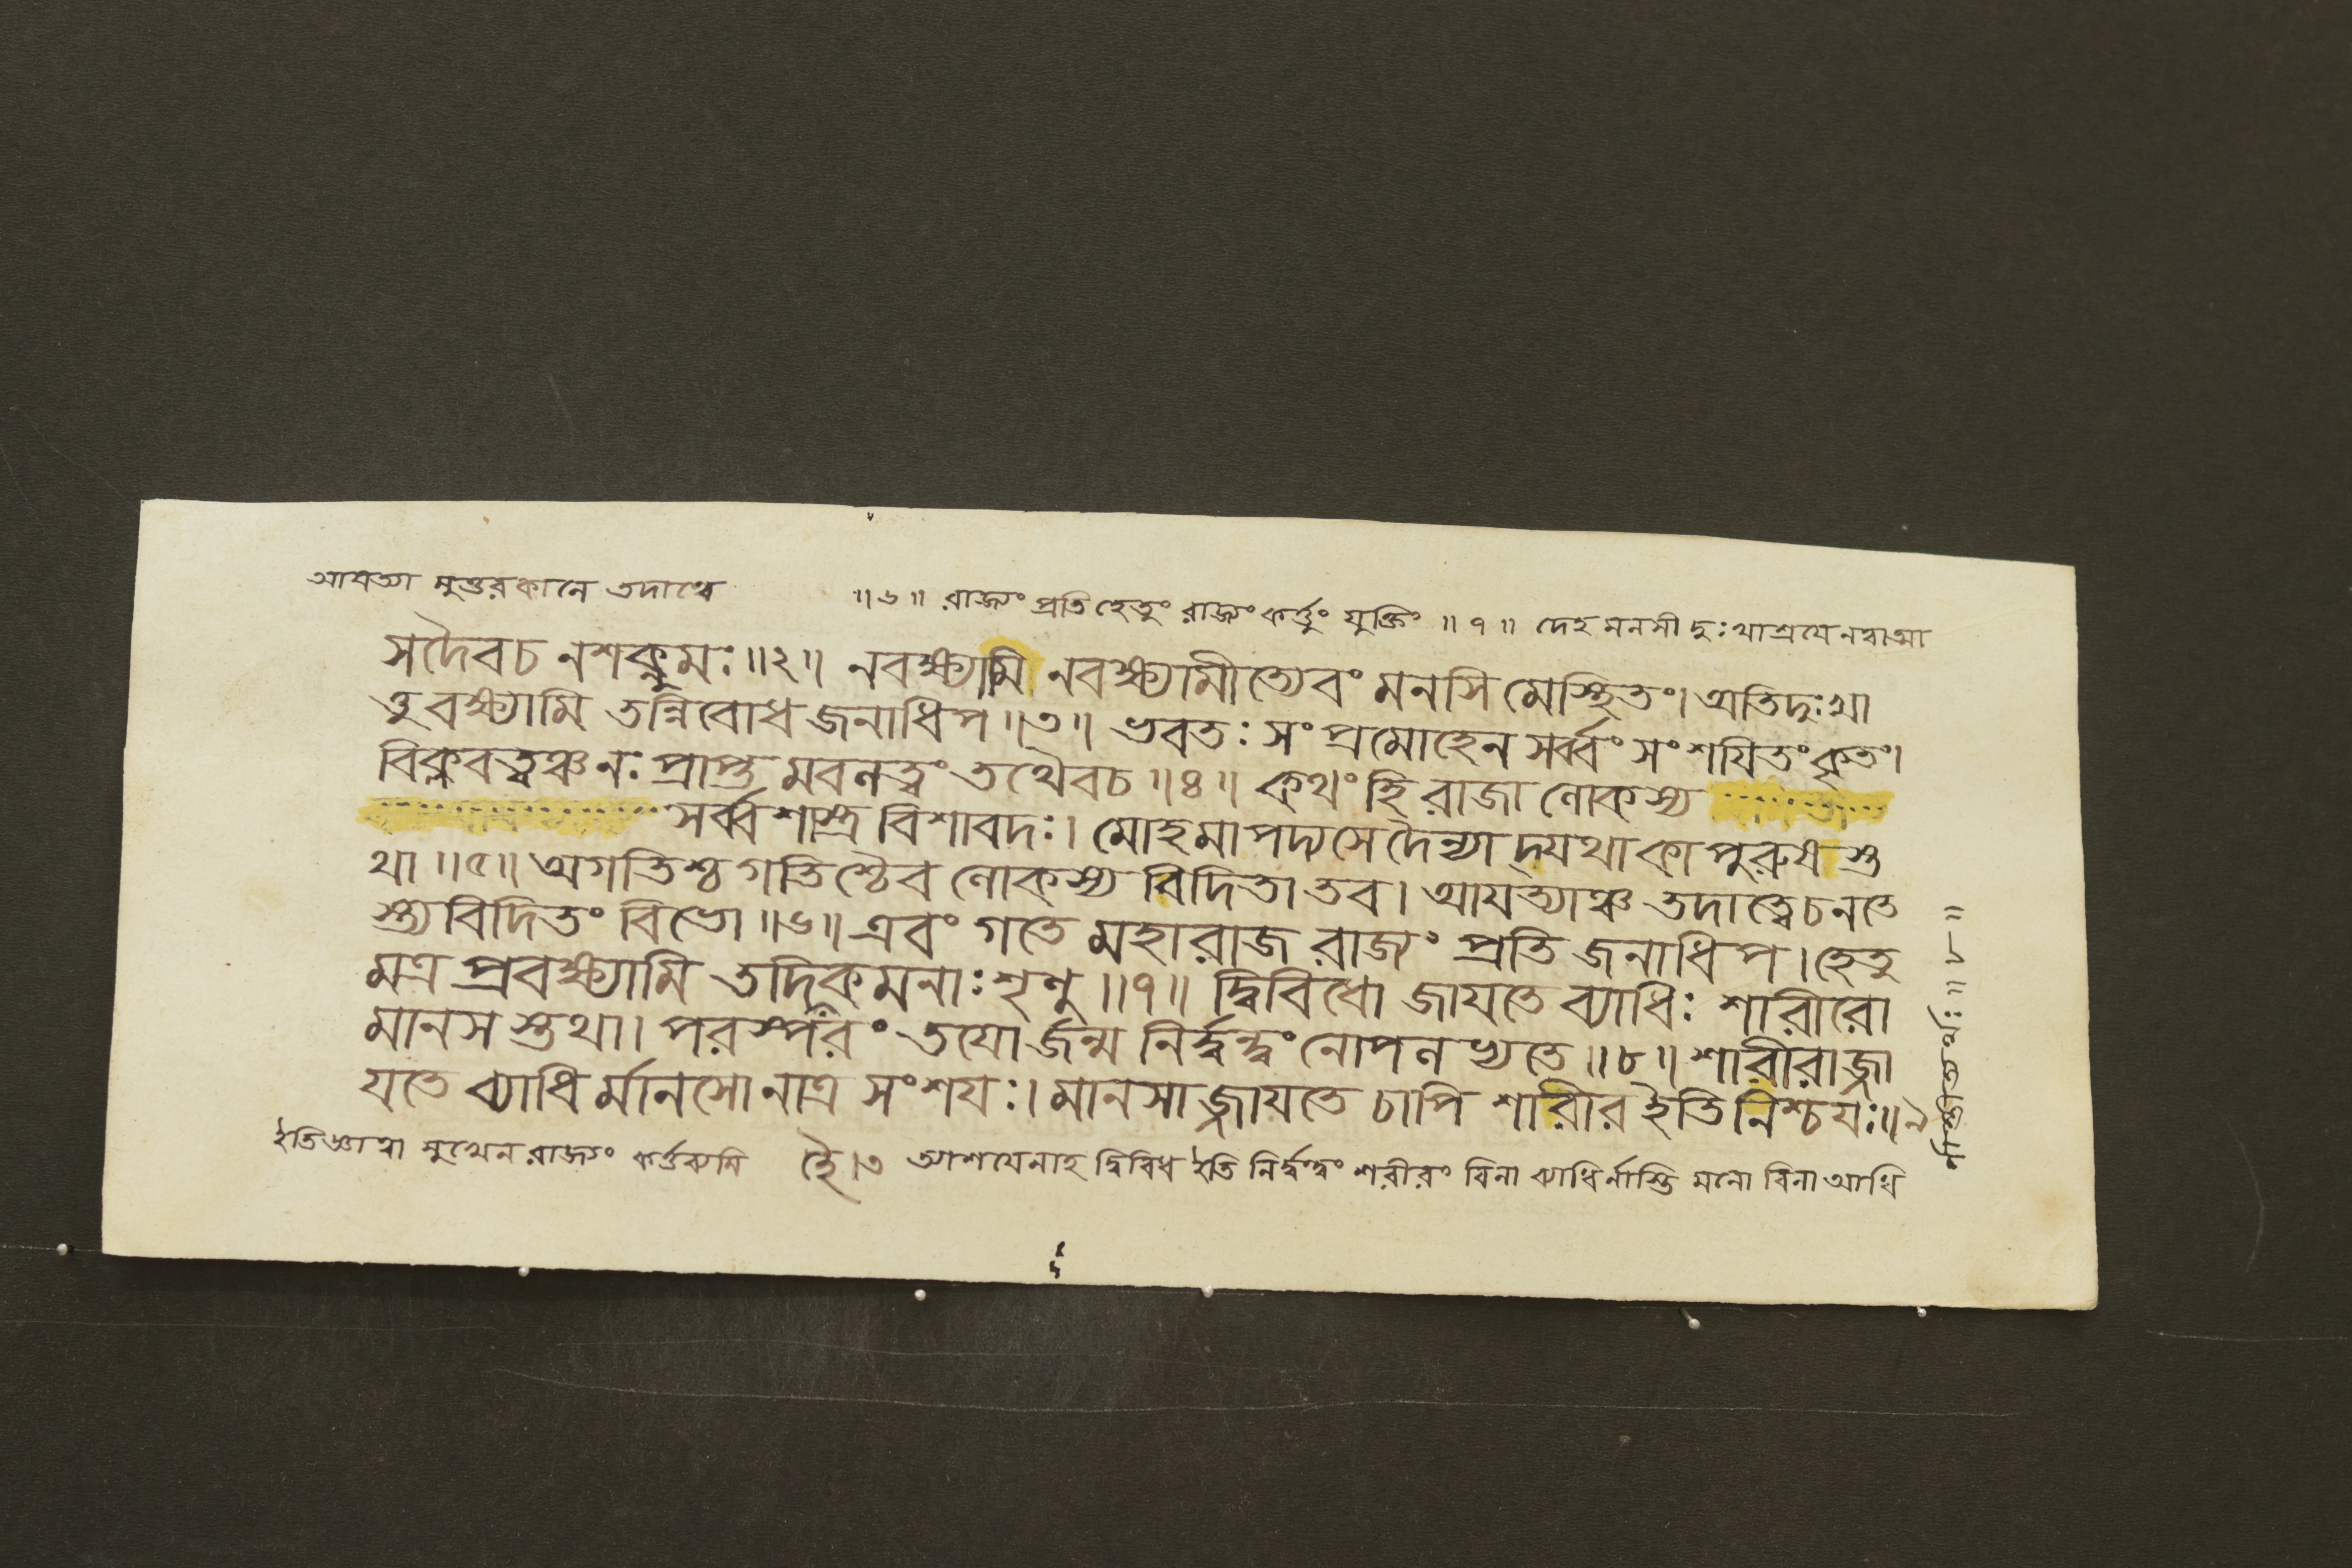 আযত্যা মুত্তরকালে তদাত্বে ॥৬॥ রাজ্যং প্রতি হেতুং রাজ্যং কর্ত্তুং যুক্তিং ॥৭॥ দেহ মনসী দুঃখাশ্রযেনত্বাত্মা
সদৈবচ নশক্নুমঃ॥২॥ নবক্ষ্যামি নবক্ষ্যামীত্যেবং মনসি মেস্থিতং। অতিদুঃখা
ত্তু বক্ষ্যামি তন্নিবোধ জনাধিপ॥৩॥ ভবতঃ সংপ্রমোহেন সর্ব্বং সংশযিতংকৃতং।
বিক্লবত্বঞ্চনঃ প্রাপ্ত মবলত্বং তথৈবচ॥৪॥ কথং হি রাজা লোকস্য
সর্ব্বশাস্ত্র বিশাবদঃ। মোহমাপদ্যসে দৈন্যা দ্যথাকাপুরুষ স্ত
থা॥৫॥ অগতিশ্চ গতিশ্চৈব লোকস্য বিদিতা তব। আযত্যাঞ্চ তদাত্বেচনতে
স্ত্যবিদিতং বিভো॥৬॥ এবং গতে মহারাজ রাজ্যং প্রতি জনাধিপ। হেতু
মত্র প্রবক্ষ্যামি তদিকমনাঃ শৃণু॥৭॥ দ্বিবিধো জাযতে ব্যাধিঃ শারীরো
মানস স্তথা। পরস্পরং তযোর্জন্ম নির্দ্বন্দ্বং নোপলভ্যতে॥৮॥ শারীরাজ্জা
যতে ব্যাধি র্মানসো নাত্র সংশযঃ। মানসা জ্জাযতে চাপি শারীর ইতি নিশ্চযঃ॥৯
ইতিজ্ঞাত্বা সুখেন রাজ্যং কর্ত্তব্যমি ত্থৈ।৩ আশযেনাহ দ্বিবিধ ইতি নির্দ্বন্দ্বং শরীরং বিনা ব্যাধির্নাস্তি মনো বিনা আধি
র্নাস্তীত্যর্থঃ॥৮॥